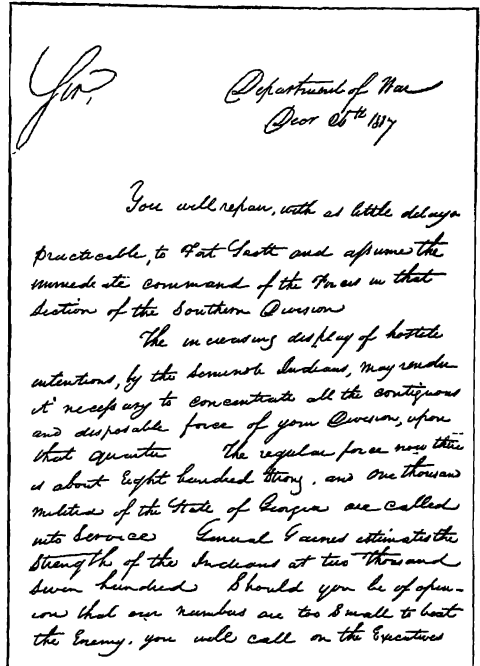 Sir,
Department of War
Decr 26th 1817
You will repair, with as little delay as
practicable, to Fort Scott and assume the
immediate command of the Forces in that
Section of the Southern Division
The increasing display of hostile
intentions, by the Seminole Indians, may render
it necessary to concentrate all the contiguous
and disposable force of your Division, upon
that quarter The regular force now there
is about Eight hundred Strong, and One thousand
militia of the State of Georgia are called
into Service General Gaines estimates the
Strength of the Indians at two Thousand
Seven hundred Should you be of opin-
ion that our numbers are too Small to beat
the Enemy, you will call on the Executives